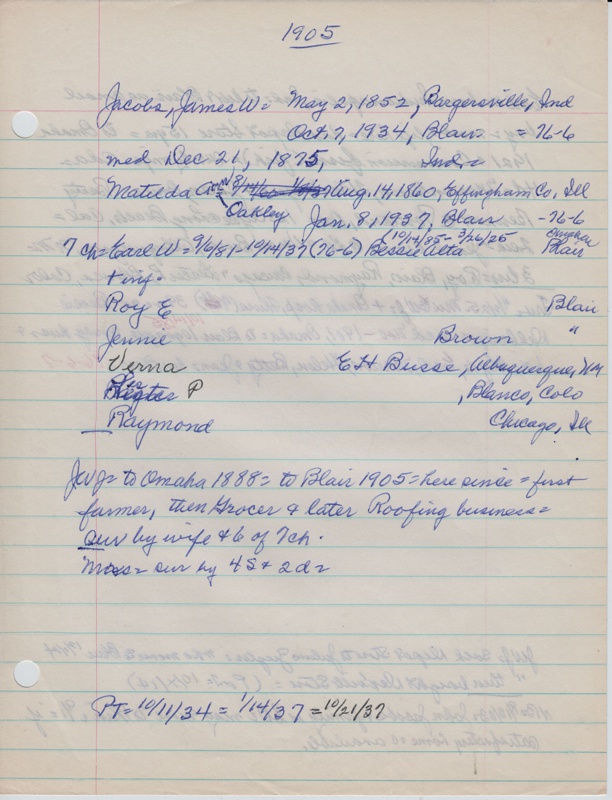 1905
Jacobs, James W = May 2, 1852, Bargersville, Ind
Oct. 7, 1934, Blair = 76-6
med Dec 21, 1875, Ind. =
Matilda Ann Aug. 14, 1860, Effingham Co, Ill
Oakley Jan. 8, 1937, Blair - 76-6
7 ch = Earl W = 9/6/81 - 10/14/37 (76-6) Bessie Alta (10/14/85 - 3/26/25 Blair
+ inf.
Roy E Blair
Jennie Brown "
Verna E H Busse, Albuquerque, NM
P , Blanco, Colo
Raymond Chicago, Ill
JWJ = to Omaha 1888 = to Blair 1905 = here since = first
farmer, then Grocer & later Roofing business =
sur by wife & 6 of 7 ch.
Mrs = sur by 4 S + 2 d =
PT = 10/11/34 = 1/14/37 = 10/21/37